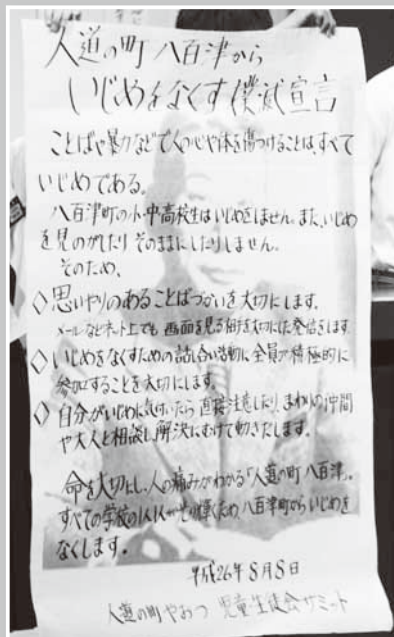 人道の町 八百津から
いじめをなくす撲滅宣言
ことばや暴力などで人の心や体を傷つけることは、すべて
いじめである。
八百津町の小・中・高校生はいじめをしません。また、いじめ
を見のがしたり そのままにしたりしません。
そのため、
◇ 思いやりのあることばづかいを大切にします。
メールなどネット上でも 画面を見る相手を大切にした発信をします
◇ いじめをなくすための話し合い活動に全員が積極的に
参加することを大切にします。
◇ 自分がいじめに気付いたら 直接注意したり、まわりの仲間
や大人と相談し 解決にむけて動きだします。
命を大切にし、人の痛みがわかる「人道の町 八百津」。
すべての学校の1人1人が光り輝くため、八百津町からいじめを
なくします。
平成26年8月8日
人道の町やおつ 児童生徒会サミット